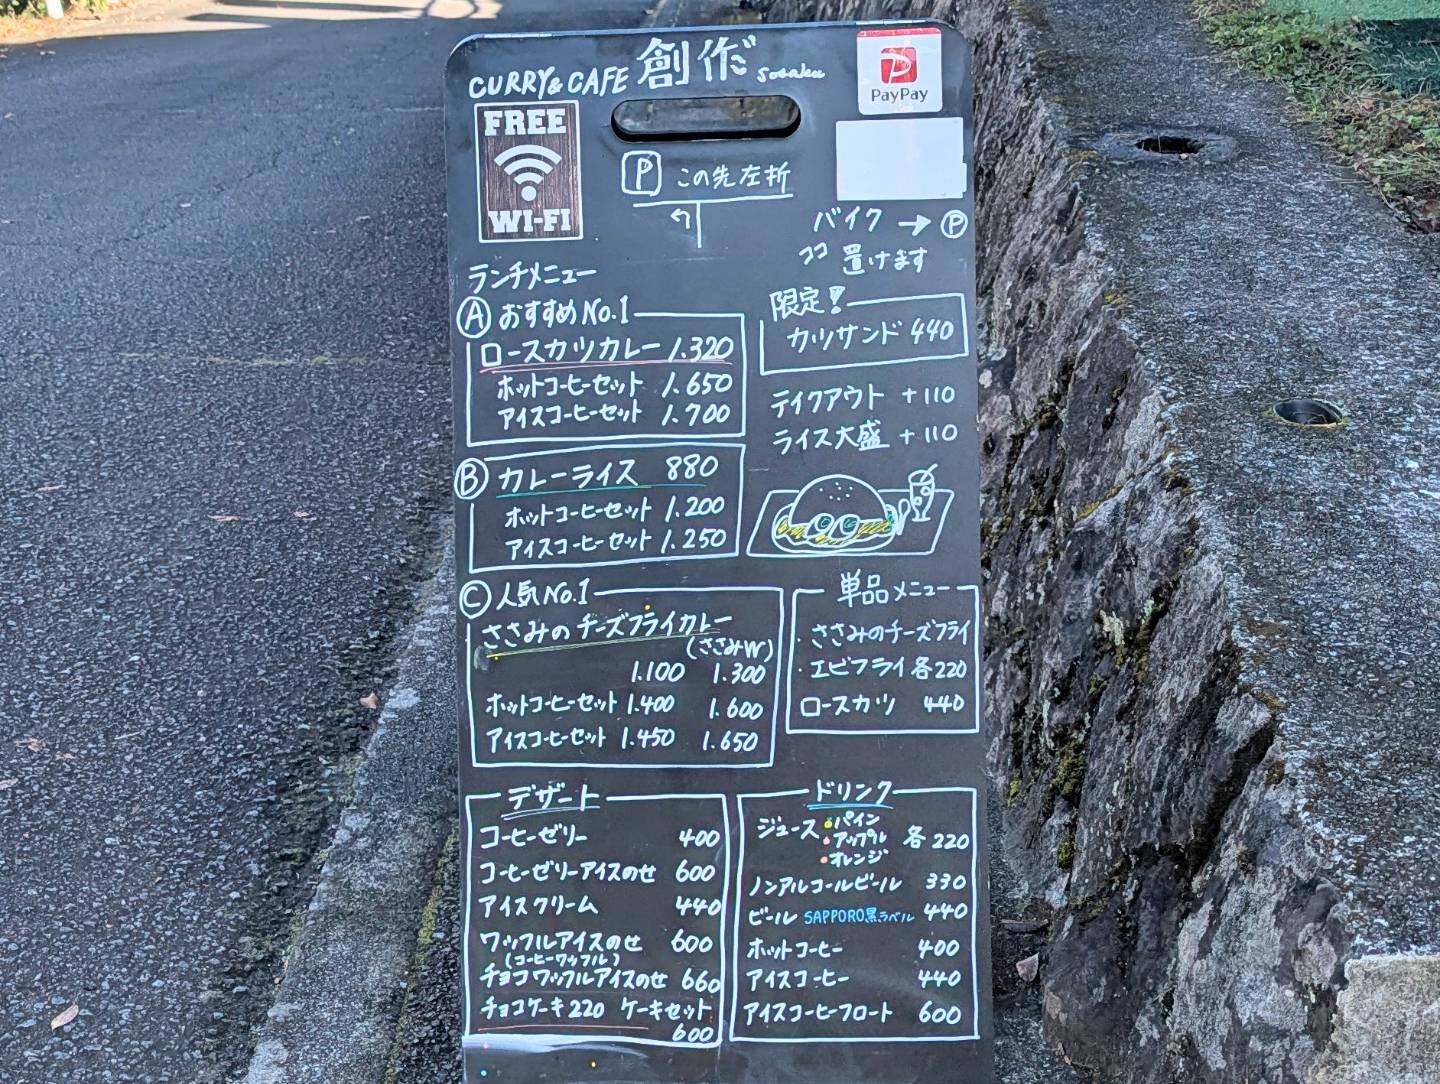 CURRY&CAFE 創作 sosaku
PayPay
FREE
WI-FI
P この先左折
バイク→P
ココ 置けます
ランチメニュー
A おすすめNo.1
ロースカツカレー 1.320
ホットコーヒーセット 1.650
アイスコーヒーセット 1.700
限定!
カツサンド 440
テイクアウト +110
ライス大盛 +110
B カレーライス 880
ホットコーヒーセット 1.200
アイスコーヒーセット 1.250
C 人気No.1
ささみのチーズフライカレー
(ささみW)
1.100 1.300
ホットコーヒーセット 1.400 1.600
アイスコーヒーセット 1.450 1.650
単品メニュー
・ささみのチーズフライ
・エビフライ 各220
ロースカツ 440
デザート
コーヒーゼリー 400
コーヒーゼリーアイスのせ 600
アイスクリーム 440
ワッフルアイスのせ 600
(コーヒーワッフル)
チョコワッフルアイスのせ 660
チョコケーキ220 ケーキセット
600
ドリンク
ジュース ●パイン
●アップル 各220
●オレンジ
ノンアルコールビール 330
ビール SAPPORO黒ラベル 440
ホットコーヒー 400
アイスコーヒー 440
アイスコーヒーフロート 600